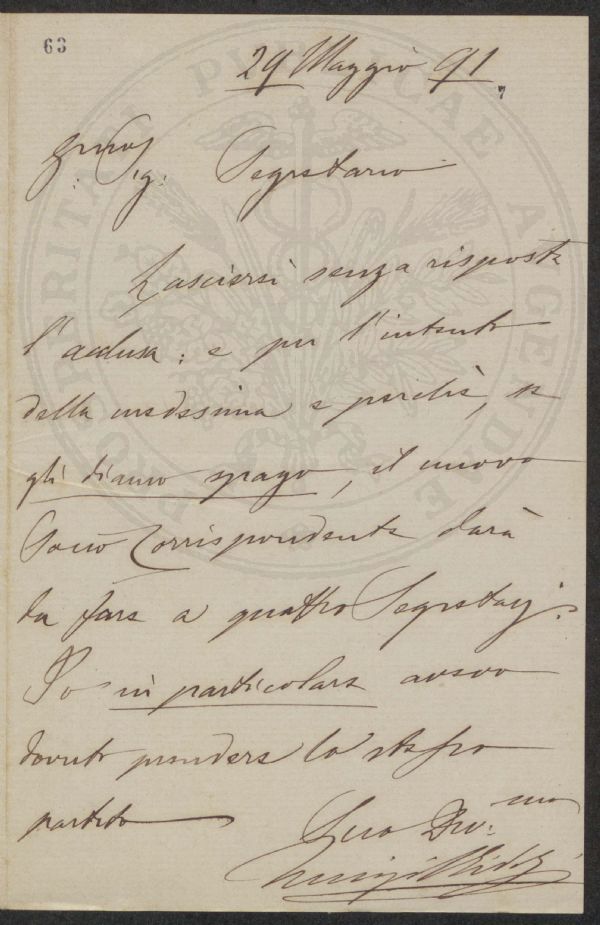 63
29 Maggio 91
7
Sig: Segretario
Lasciersi senza risposta
l'acclusa: e per l'intento
della medesima e perchè, se
gli diamo spago, il nuovo
Socio Corrispondente darà
da fare a quattro Segretarj.
Io in particolare avevo
dovuto prendere lo stesso
partito
Suo Dev.mo
Luigi Ridolfi
PROSPERITATI PUBLICAE AUGENDAE